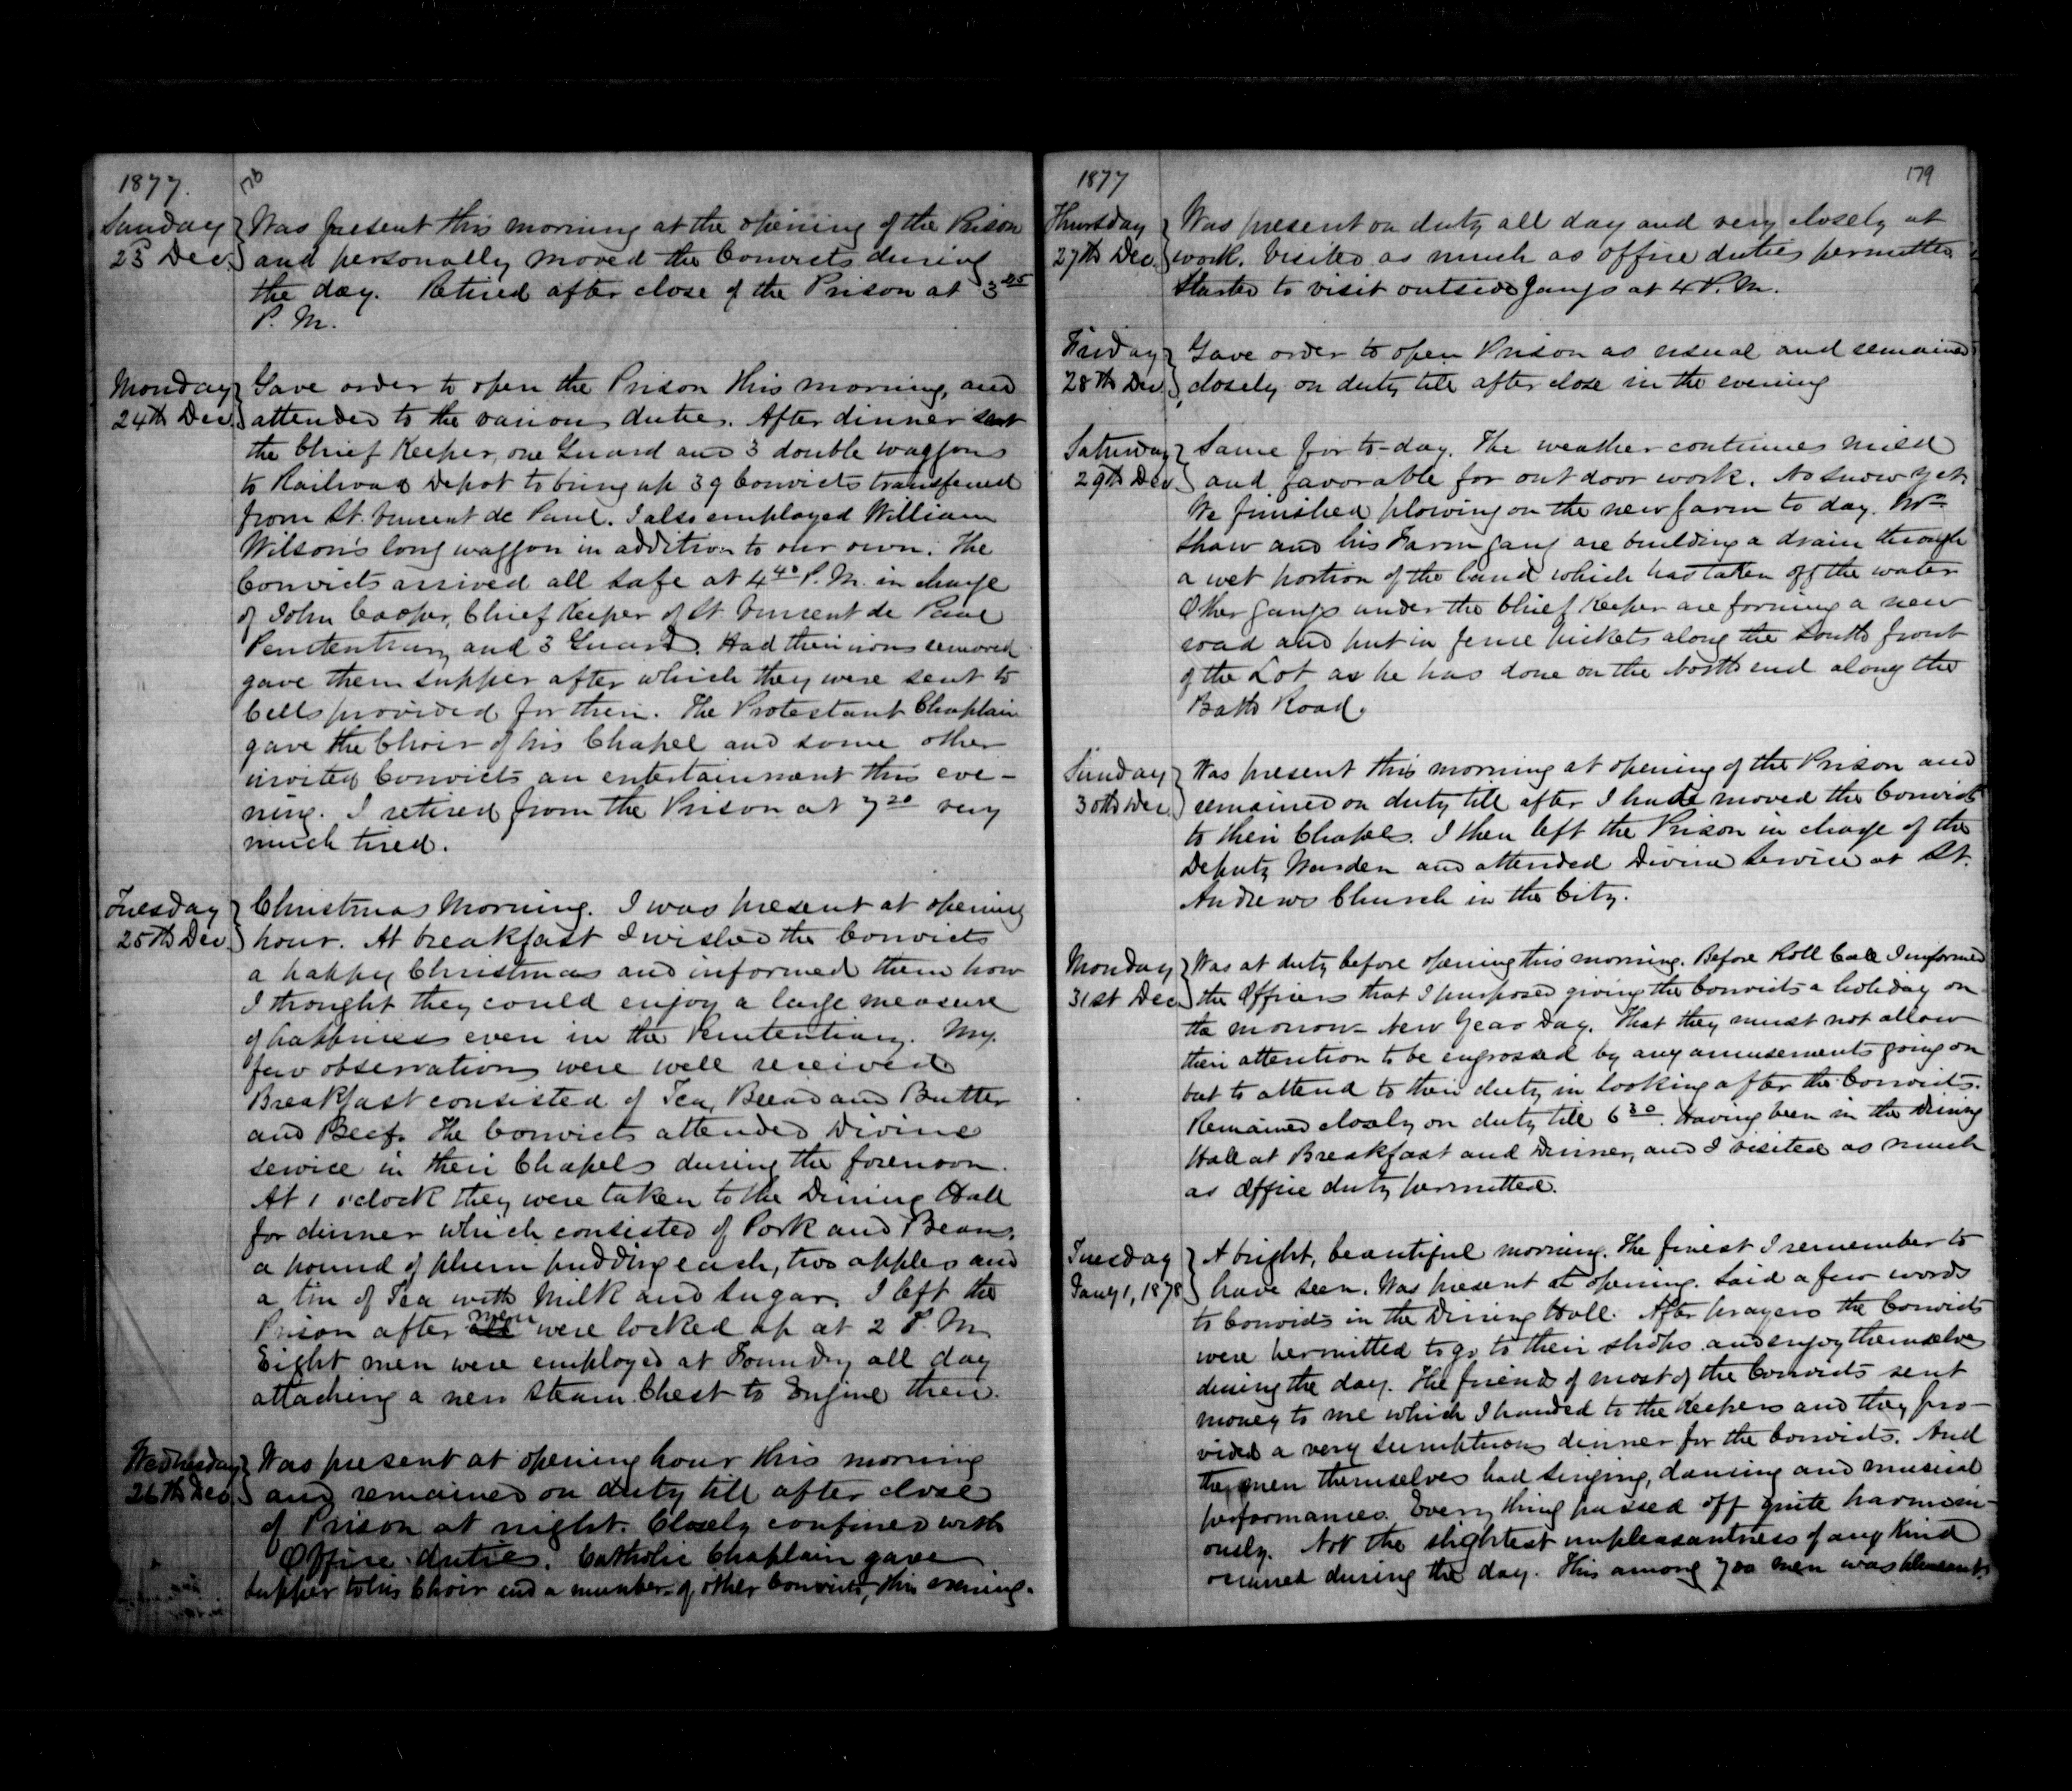 1877.
178
Sunday
23 Dec.
Was present this morning at the opening of the Prison
and personally moved the Convicts during
the day. Retired after close of the Prison at 3 45
P. M.
Monday
24th Dec.
Gave order to open the Prison this morning, and
attended to the various duties. After dinner sent
the Chief Keeper, one Guard and 3 double waggons
to Railroad Depot to bring up 39 Convicts transferred
from St. Vincent de Paul. I also employed William
Wilson's long waggon in addition to our own. The
Convicts arrived all safe at 4 40 P. M. in charge
of John Cooper, Chief Keeper of St. Vincent de Paul
Penitentiary and 3 Guards. Had their irons removed
gave them supper after which they were sent to
Cells provided for them. The Protestant Chaplain
gave the Choir of his Chapel and some other
invited Convicts an entertainment this eve-
ning. I retired from the Prison at 7 20 very
much tired.
Tuesday
25th Dec.
Christmas Morning. I was present at opening
hour. At breakfast I wished the Convicts
a happy Christmas and informed them how
I thought they could enjoy a large measure
of happiness even in the Penitentiary. My
few observations were well received
Breakfast consisted of Tea, Bread and Butter
and Beef. The Convicts attended Divine
service in their Chapels during the forenoon.
At 1 o'clock they were taken to the Dining Hall
for dinner which consisted of Pork and Beans,
a pound of plum pudding each, two apples and
a tin of Tea with Milk and Sugar. I left the
Prison after men were locked up at 2 P. M.
Eight men were employed at Foundry all day
attaching a new Steam Chest to Engine there.
Wednesday
26th Dec.
Was present at opening hour this morning
and remained on duty till after close
of Prison at night. Closely confined with
Office duties. Catholic Chaplain gave
supper to his Choir and a number of other Convicts, this evening.
1877
179
Thursday
27th Dec.
Was present on duty all day and very closely at
work. Visited as much as office duties permitted
Started to visit outside gangs at 4 P. M.
Friday
28th Dec.
Gave order to open Prison as usual and remained
closely on duty till after close in the evening
Saturday
29th Dec
Same for to-day. The weather continues mild
and favorable for out door work. No snow yet.
We finished plowing on the new farm to day. Mr
Shaw and his Farm gang are building a drain through
a wet portion of the land which has taken off the water
Other gangs under the Chief Keeper are forming a new
road and put in fence pickets along the South front
of the Lot as he has done on the North end along the
Bath Road.
Sunday
30th Dec.
Was present this morning at opening of the Prison and
remained on duty till after I had moved the Convicts
to their Chapels. I then left the Prison in charge of the
Deputy Warden and attended Divine Service at St.
Andrews Church in the City.
Monday
31st Dec
Was at duty before opening this morning. Before Roll Call I informed
the Officers that I purposed giving the Convicts a holiday on
the morrow - New Years Day. That they must not allow
their attention to be engrossed by any amusements going on
but to attend to their duty in looking after the Convicts.
Remained closely on duty till 6 30. Having been in the Dining
Hall at Breakfast and Dinner, and I visited as much
as office duty permitted.
Tuesday
Jany 1, 1878
A bright, beautiful morning. The finest I remember to
have seen. Was present at opening. Said a few words
to Convicts in the Dining Hall. After prayers the Convicts
were permitted to go to their shops and enjoy themselves
during the day. The friends of most of the Convicts sent
money to me which I handed to the Keepers and they pro-
vided a very sumptuous dinner for the Convicts. And
the men themselves had singing, dancing and musical
performances. Every thing passed off quite harmoni-
ously. Not the slightest unpleasantness of any kind
occurred during the day. This among 700 men was pleasant.